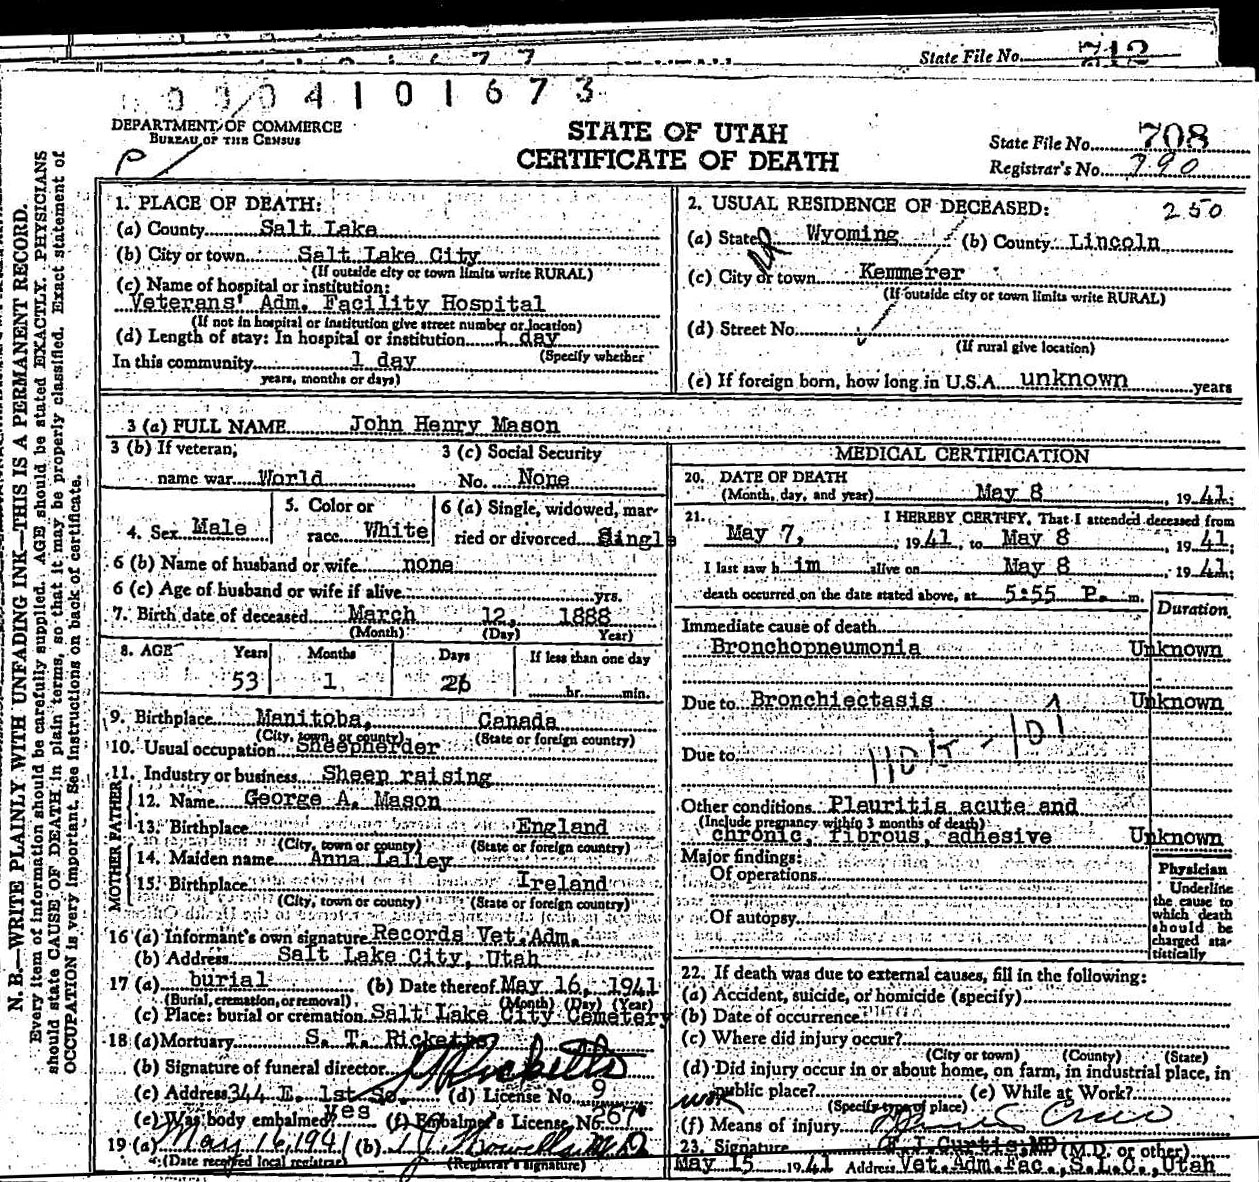 State File No. 712
0004101673
DEPARTMENT OF COMMERCE
BUREAU OF THE CENSUS
STATE OF UTAH
CERTIFICATE OF DEATH
State File No. 708
Registrar's No. 790
N. B.—WRITE PLAINLY WITH UNFADING INK—THIS IS A PERMANENT RECORD.
Every item of information should be carefully supplied. AGE should be stated EXACTLY. PHYSICIANS
should state CAUSE OF DEATH in plain terms, so that it may be properly classified. Exact statement of
OCCUPATION is very important. See instructions on back of certificate.
1. PLACE OF DEATH:
(a) County Salt Lake
(b) City or town Salt Lake City
(If outside city or town limits write RURAL)
(c) Name of hospital or institution:
Veterans' Adm. Facility Hospital
(If not in hospital or institution give street number or location)
(d) Length of stay: In hospital or institution 1 day
(Specify whether
In this community 1 day
years, months or days)
2. USUAL RESIDENCE OF DECEASED: 250
(a) State Wyoming (b) County Lincoln
(c) City or town Kemmerer
(If outside city or town limits write RURAL)
(d) Street No.
(If rural give location)
(e) If foreign born, how long in U.S.A. unknown years
3 (a) FULL NAME John Henry Mason
3 (b) If veteran, name war World
3 (c) Social Security No. None
4. Sex Male
5. Color or race White
6 (a) Single, widowed, married or divorced Singl
6 (b) Name of husband or wife none
6 (c) Age of husband or wife if alive yrs.
7. Birth date of deceased March 12, 1888
(Month) (Day) Year)
8. AGE Years Months Days If less than one day
53 1 26 hr. min.
9. Birthplace Manitoba, Canada
(City, town, or county) (State or foreign country)
10. Usual occupation Sheepherder
11. Industry or business Sheep raising
FATHER
12. Name George A. Mason
13. Birthplace England
(City, town or county) (State or foreign country)
MOTHER
14. Maiden name Anna Lalley
15. Birthplace Ireland
(City, town or county) (State or foreign country)
16 (a) Informant's own signature Records Vet. Adm.
(b) Address Salt Lake City, Utah
17 (a) burial (b) Date thereof May 16, 1941
(Burial, cremation, or removal) (Month) (Day) (Year)
(c) Place: burial or cremation Salt Lake City Cemetery
18 (a) Mortuary S. T. Ricketts
(b) Signature of funeral director Ricketts
(c) Address 344 E. 1st So. (d) License No. 9
(e) Was body embalmed? yes (f) Embalmer's License No. 267
19 (a) May 16, 1941 (b)
(Date received local registrar) (Registrar's signature)
MEDICAL CERTIFICATION
20. DATE OF DEATH
(Month, day, and year) May 8, 1941;
21. I HEREBY CERTIFY, That I attended deceased from
May 7, 1941, to May 8, 1941;
I last saw him alive on May 8, 1941;
death occurred on the date stated above, at 5:55 P. m.
Duration
Immediate cause of death
Bronchopneumonia Unknown
Due to Bronchiectasis Unknown
Due to
Other conditions Pleuritis acute and
(Include pregnancy within 3 months of death)
chronic, fibrous, adhesive Unknown
Major findings:
Of operations
Of autopsy
Physician
Underline
the cause to
which death
should be
charged sta-
tistically
22. If death was due to external causes, fill in the following:
(a) Accident, suicide, or homicide (specify)
(b) Date of occurrence
(c) Where did injury occur?
(City or town) (County) (State)
(d) Did injury occur in or about home, on farm, in industrial place, in
public place? (e) While at Work?
(Specify type of place)
(f) Means of injury
23. Signature Curtis, MD (M.D. or other)
May 15 1941 Address Vet. Adm. Fac., S.L.C., Utah